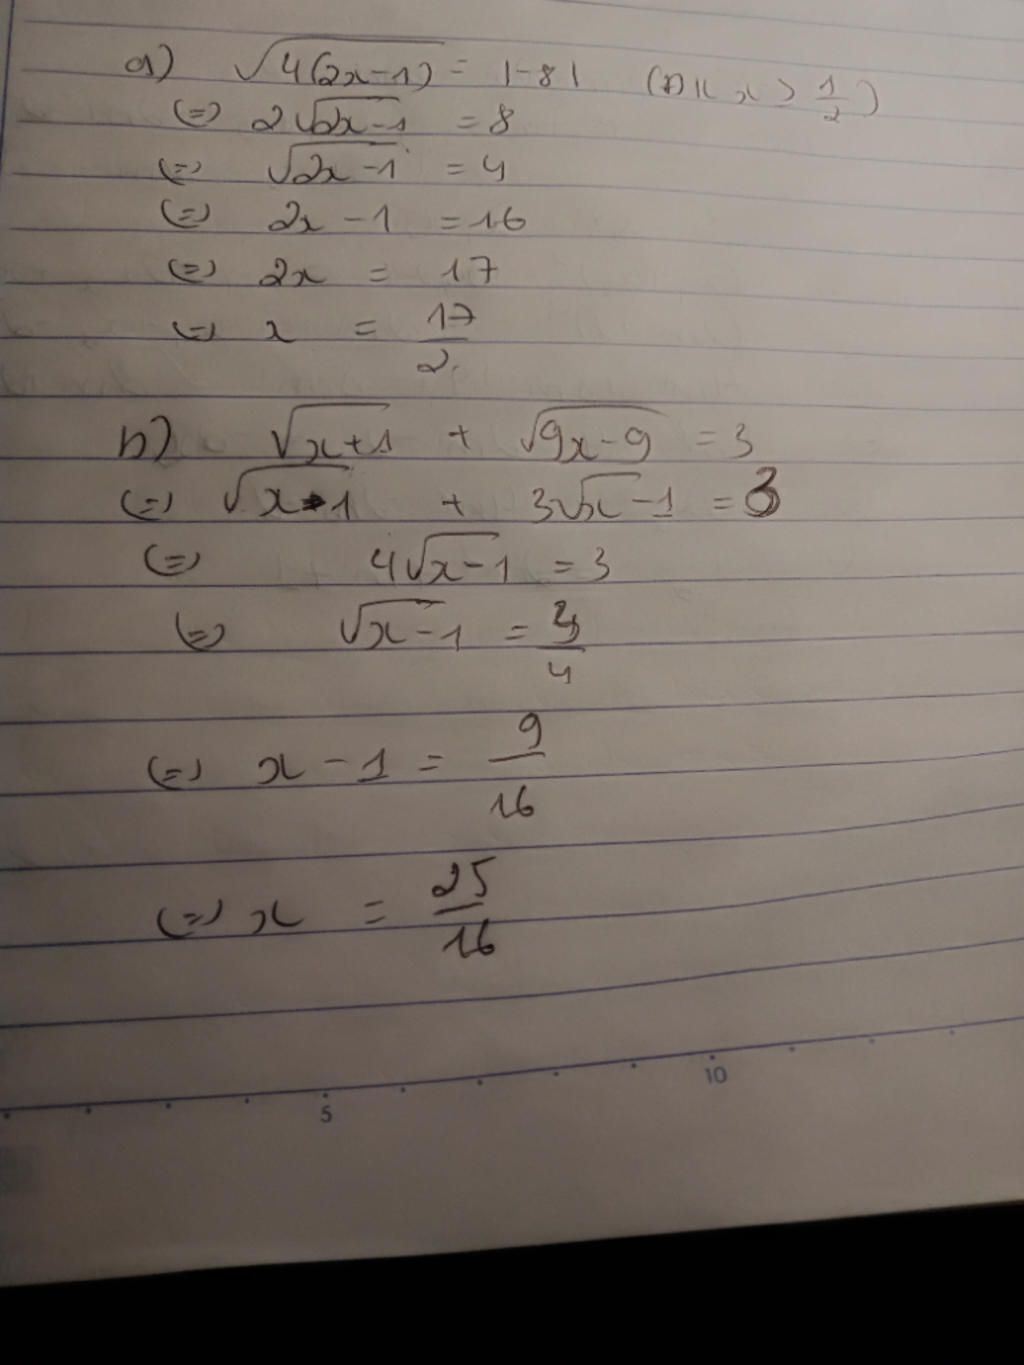 a) √4(2x-1) = |-8| (ĐK x > 1/2)
(=) 2√2x-1 = 8
(=) √2x-1 = 4
(=) 2x - 1 = 16
(=) 2x = 17
(=) x = 17/2
b) √x+1 + √9x-9 = 3
(=) √x-1 + 3√x-1 = 3
(=) 4√x-1 = 3
(=) √x-1 = 3/4
(=) x - 1 = 9/16
(=) x = 25/16
5 10